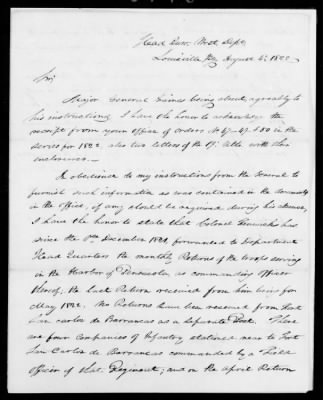 Head Qurs, West. Dept,
Louisville Ky August 4th 1822
Sir,
Major General Gaines being absent, agreeably to
his instructions I have the honor to acknowledge the
receipt from your office of orders No 47. 49. & 50 in the
series for 1822. also two letters of the 19th Ulto with their
enclosures.—
In obedience to my instructions from the General to
furnish such information as was contained in the documents
in the office, if any should be required during his absence,
I have the honor to state that Colonel
since the December 1821, forwarded to Department
Head Quarters the monthly Returns of the troops serving
in the Harbor of Pensacola, as commanding officer
thereof; the last Return received from him being for
May 1822. No Returns have been received from Fort
San Carlos de Barrancas as a separate Post. There
are four companies of Infantry stationed near to Fort
San Carlos de Barrancas commanded by a Field
officer of that Regiment; and on the April Return